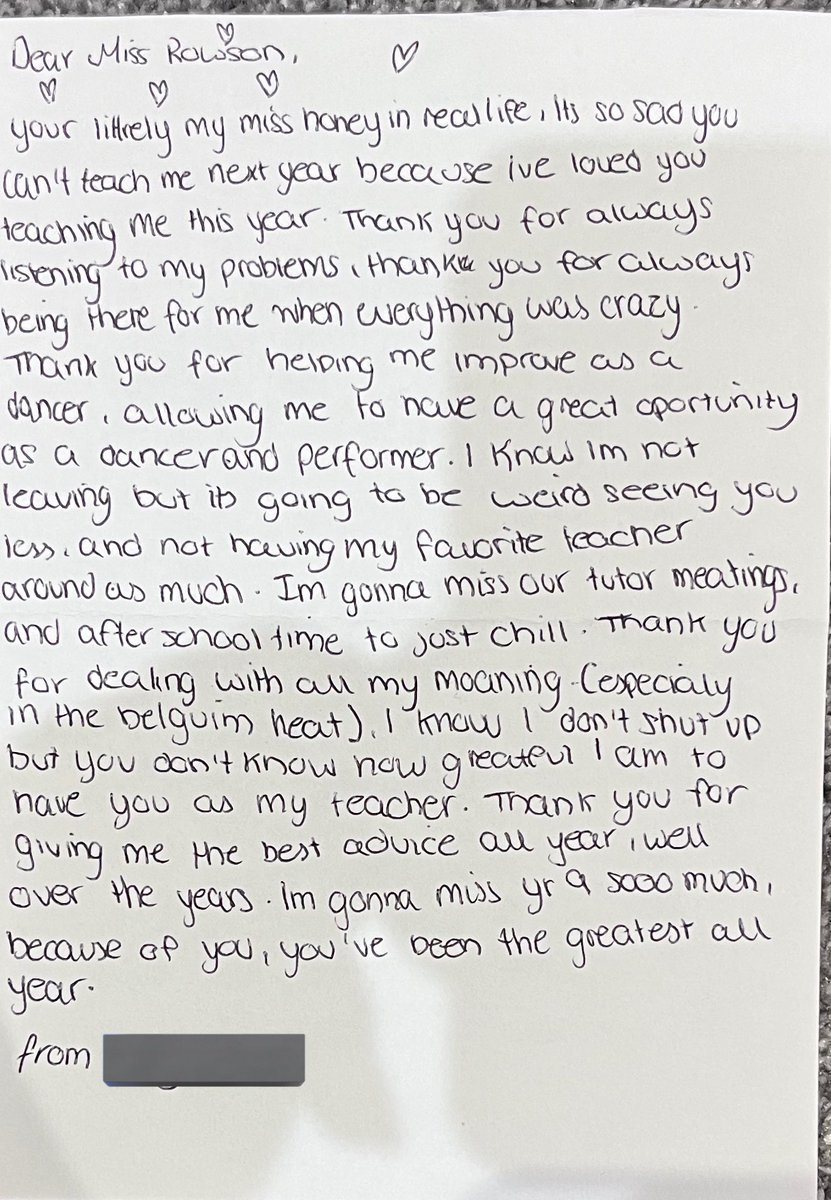 Dear Miss Rowson,
your littrely my miss honey in real life, Its so sad you
can't teach me next year because ive loved you
teaching me this year. Thank you for always
listening to my problems, thank you for always
being there for me when everything was crazy.
Thank you for helping me improve as a
dancer, allowing me to have a great oportunity
as a dancer and performer. I know im not
leaving but its going to be weird seeing you
less, and not having my favorite teacher
around as much. Im gonna miss our tutor meatings,
and after school time to just chill. Thank you
for dealing with all my moaning (especialy
in the belguim heat), I know I don't shut up
but you don't know how greatful I am to
have you as my teacher. Thank you for
giving me the best advice all year, well
over the years. Im gonna miss yr 9 sooo much,
because of you, you've been the greatest all
year.
from